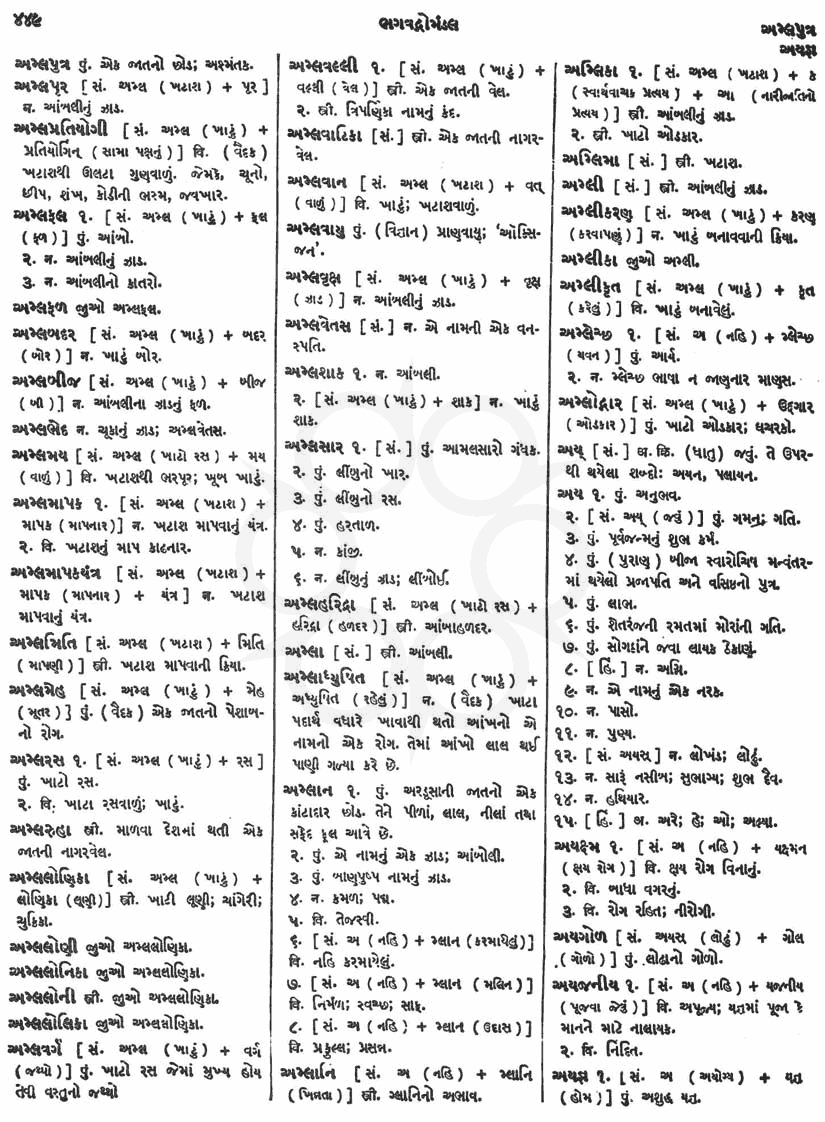 ૪૪૯
ભગવદ્ગોમંડલ
અમ્લપુત્ર
અયજ્ઞ
અમ્લપુત્ર પું. એક જાતનો છોડ; અશ્મંતક.
અમ્લપૂર [ સં. અમ્લ ( ખટાશ ) + પૂર ]
ન. આંબલીનું ઝાડ.
અમ્લપ્રતિયોગી [ સં. અમ્લ ( ખાટું ) +
પ્રતિયોગિન્ ( સામા પક્ષનું ) ] વિ. ( વૈદક )
ખટાશથી ઊલટા ગુણવાળું. જેમકે, ચૂનો,
છીપ, શંખ, કોડીની ભસ્મ, જવખાર.
અમ્લફલ ૧. [ સં. અમ્લ ( ખાટું ) + ફલ
( ફળ ) ] પું. આંબો.
૨. ન. આંબલીનું ઝાડ.
૩. ન. આંબલીનો કાતરો.
અમ્લફળ જુઓ અમ્લફલ.
અમ્લબદર [ સં. અમ્લ ( ખાટું ) + બદર
( બોર ) ] ન. ખાટું બોર.
અમ્લબીજ [ સં. અમ્લ ( ખાટું ) + બીજ
( બી ) ] ન. આંબલીના ઝાડનું ફળ.
અમ્લભેદ ન. ચૂકાનું ઝાડ; અમ્લવેતસ.
અમ્લમય [ સં. અમ્લ ( ખાટો રસ ) + મય
( વાળું ) ] વિ. ખટાશથી ભરપૂર; ખૂબ ખાટું.
અમ્લમાપક ૧. [ સં. અમ્લ ( ખટાશ ) +
માપક ( માપનાર ) ] ન. ખટાશ માપવાનું યંત્ર.
૨. વિ. ખટાશનું માપ કાઢનાર.
અમ્લમાપકયંત્ર [ સં. અમ્લ ( ખટાશ ) +
માપક ( માપનાર ) + યંત્ર ] ન. ખટાશ
માપવાનું યંત્ર.
અમ્લમિતિ [ સં. અમ્લ ( ખટાશ ) + મિતિ
( માપણી ) ] સ્ત્રી. ખટાશ માપવાની ક્રિયા.
અમ્લમેહ [ સં. અમ્લ ( ખાટું ) + મેહ
( મૂતર ) ] પું. ( વૈદક ) એક જાતનો પેશાબ-
નો રોગ.
અમ્લરસ ૧. [ સં. અમ્લ ( ખાટું ) + રસ ]
પું. ખાટો રસ.
૨. વિ. ખાટા રસવાળું; ખાટું.
અમ્લરુહા સ્ત્રી. માળવા દેશમાં થતી એક
જાતની નાગરવેલ.
અમ્લલોણિકા [ સં. અમ્લ ( ખાટું ) +
લોણિકા ( લૂણી ) ] સ્ત્રી. ખાટી લૂણી; ચાંગેરી;
ચુક્રિકા.
અમ્લલોણી જુઓ અમ્લલોણિકા.
અમ્લલોનિકા જુઓ અમ્લલોણિકા.
અમ્લલોની સ્ત્રી. જુઓ અમ્લલોણિકા.
અમ્લલોલિકા જુઓ અમ્લલોણિકા.
અમ્લવર્ગ [ સં. અમ્લ ( ખાટું ) + વર્ગ
( જથ્થો ) ] પું. ખાટો રસ જેમાં મુખ્ય હોય
તેવી વસ્તુનો જથ્થો
અમ્લવલ્લી ૧. [ સં. અમ્લ ( ખાટું ) +
વલ્લી ( વેલ ) ] સ્ત્રી. એક જાતની વેલ.
૨. સ્ત્રી. ત્રિપર્ણિકા નામનું કંદ.
અમ્લવાટિકા [ સં. ] સ્ત્રી. એક જાતની નાગર-
વેલ.
અમ્લવાન [ સં. અમ્લ ( ખટાશ ) + વત્
( વાળું ) ] વિ. ખાટું; ખટાશવાળું.
અમ્લવાયુ પું. ( વિજ્ઞાન ) પ્રાણવાયુ; ‘ઑક્સિ-
જન’.
અમ્લવૃક્ષ [ સં. અમ્લ ( ખાટું ) + વૃક્ષ
( ઝાડ ) ] ન. આંબલીનું ઝાડ.
અમ્લવેતસ [ સં. ] ન. એ નામની એક વન-
સ્પતિ.
અમ્લશાક ૧. ન. આંબલી.
૨. [ સં. અમ્લ ( ખાટું ) + શાક ] ન. ખાટું
શાક.
અમ્લસાર ૧. [ સં. ] પું. આમલસારો ગંધક.
૨. પું. લીંબુનો ખાર.
૩. પું. લીંબુનો રસ.
૪. પું. હરતાળ.
૫. ન. કાંજી.
૬. ન. લીંબુનું ઝાડ; લીંબોઈ.
અમ્લહરિદ્રા [ સં. અમ્લ ( ખાટો રસ ) +
હરિદ્રા ( હળદર ) ] સ્ત્રી. આંબાહળદર.
અમ્લા [ સં. ] સ્ત્રી. આંબલી.
અમ્લાધ્યુષિત [ સં. અમ્લ ( ખાટું ) +
અધ્યુષિત ( રહેલું ) ] ન. ( વૈદક ) ખાટા
પદાર્થ વધારે ખાવાથી થતો આંખનો એ
નામનો એક રોગ. તેમાં આંખો લાલ થઈ
પાણી ગળ્યા કરે છે.
અમ્લાન ૧. પું. અરડૂસાની જાતનો એક
કાંટાદાર છોડ. તેને પીળાં, લાલ, નીલાં તથા
સફેદ ફૂલ આવે છે.
૨. પું. એ નામનું એક ઝાડ; આંબોલી.
૩. પું. બાણપુષ્પ નામનું ઝાડ.
૪. ન. કમળ; પદ્મ.
૫. વિ. તેજસ્વી.
૬. [ સં. અ ( નહિ ) + મ્લાન ( કરમાયેલું ) ]
વિ. નહિ કરમાયેલું.
૭. [ સં. અ ( નહિ ) + મ્લાન ( મલિન ) ]
વિ. નિર્મળ; સ્વચ્છ; સાફ.
૮. [ સં. અ ( નહિ ) + મ્લાન ( ઉદાસ ) ]
વિ. પ્રફુલ્લ; પ્રસન્ન.
અમ્લાનિ [ સં. અ ( નહિ ) + મ્લાનિ
( ખિન્નતા ) ] સ્ત્રી. ગ્લાનિનો અભાવ.
અમ્લિકા ૧. [ સં. અમ્લ ( ખટાશ ) + ક
( સ્વાર્થવાચક પ્રત્યય ) + આ ( નારીજાતિનો
પ્રત્યય ) ] સ્ત્રી. આંબલીનું ઝાડ.
૨. સ્ત્રી. ખાટો ઓડકાર.
અમ્લિમા [ સં. ] સ્ત્રી. ખટાશ.
અમ્લી [ સં. ] સ્ત્રી. આંબલીનું ઝાડ.
અમ્લીકરણ [ સં. અમ્લ ( ખાટું ) + કરણ
( કરવાપણું ) ] ન. ખાટું બનાવવાની ક્રિયા.
અમ્લીકા જુઓ અમ્લી.
અમ્લીકૃત [ સં. અમ્લ ( ખાટું ) + કૃત
( કરેલું ) ] વિ. ખાટું બનાવેલું.
અમ્લેચ્છ ૧. [ સં. અ ( નહિ ) + મ્લેચ્છ
( યવન ) ] પું. આર્ય.
૨. ન. મ્લેચ્છ ભાષા ન જાણનાર માણસ.
અમ્લોદ્ગાર [ સં. અમ્લ ( ખાટું ) + ઉદ્ગાર
( ઓડકાર ) ] પું. ખાટો ઓડકાર; ઘચરકો.
અય્ [ સં. ] અ. ક્રિ. ( ધાતુ ) જવું. તે ઉપર-
થી થયેલા શબ્દો: અયન, પલાયન.
અય ૧. પું. અનુભવ.
૨. [ સં. અય્ ( જવું ) ] પું. ગમન; ગતિ.
૩. પું. પૂર્વજન્મનું શુભ કર્મ.
૪. પું. ( પુરાણ ) બીજા સ્વારોચિષ મન્વંતર-
માં થયેલો પ્રજાપતિ અને વસિષ્ઠનો પુત્ર.
૫. પું. લાભ.
૬. પું. શેતરંજની રમતમાં મોરાંની ગતિ.
૭. પું. સોગઠાંને જવા લાયક ઠેકાણું.
૮. [ હિં. ] ન. અગ્નિ.
૯. ન. એ નામનું એક નરક.
૧૦. ન. પાસો.
૧૧. ન. પુણ્ય.
૧૨. [ સં. અયસ્ ] ન. લોખંડ; લોઢું.
૧૩. ન. સારૂં નસીબ; સુભાગ્ય; શુભ દૈવ.
૧૪. ન. હથિયાર.
૧૫. [ હિં. ] અ. અરે; હે; ઓ; અહ્યા.
અયક્ષ્મ ૧. [ સં. અ ( નહિ ) + યક્ષ્મન્
( ક્ષય રોગ ) ] વિ. ક્ષય રોગ વિનાનું.
૨. વિ. બાધા વગરનું.
૩. વિ. રોગ રહિત; નીરોગી.
અયગોળ [ સં. અયસ્ ( લોઢું ) + ગોલ
( ગોળો ) ] પું. લોઢાનો ગોળો.
અયજનીય ૧. [ સં. અ ( નહિ ) + યજનીય
( પૂજવા જેવું ) ] વિ. અપૂજ્ય; યજ્ઞમાં પૂજા કે
માનને માટે નાલાયક.
૨. વિ. નિંદિત.
અયજ્ઞ ૧. [ સં. અ ( અયોગ્ય ) + યજ્ઞ
( હોમ ) ] પું. અશુદ્ધ યજ્ઞ.